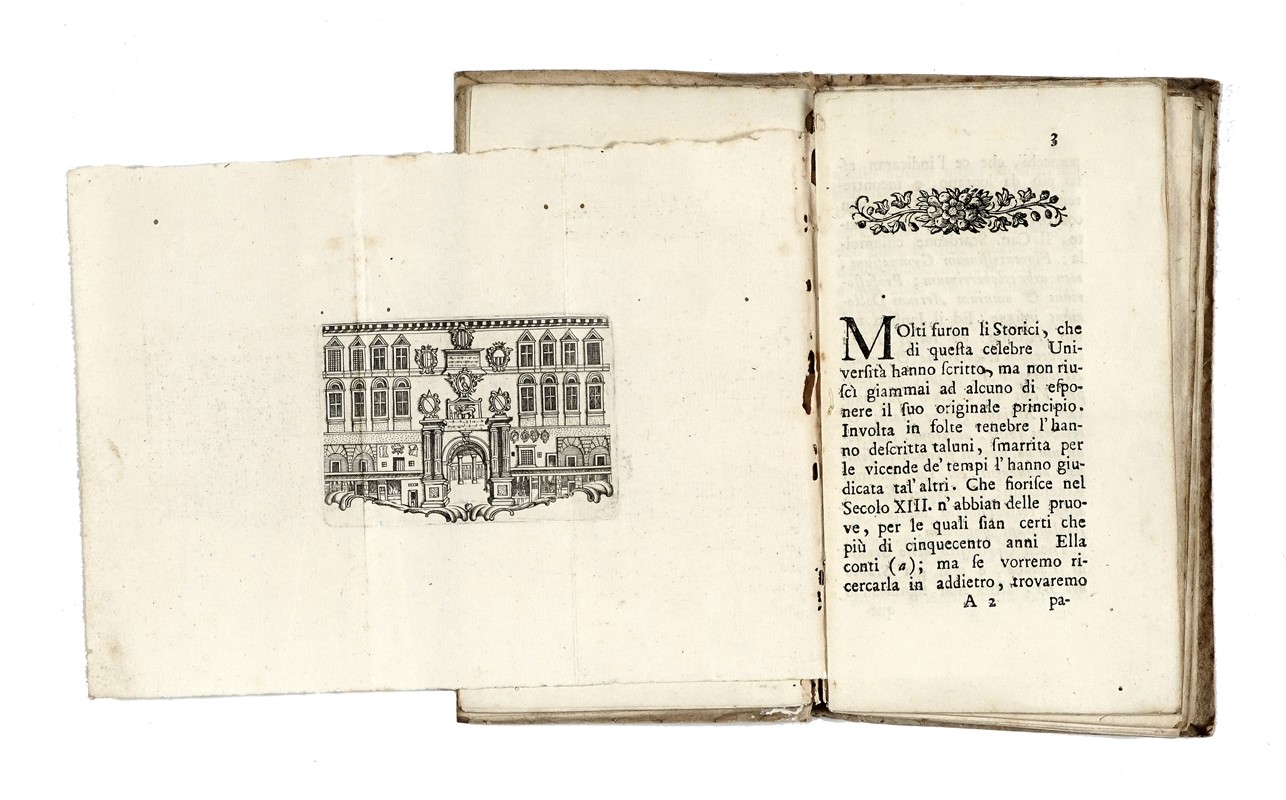 3
MOlti furon li Storici, che
di queſta celebre Uni-
verſità hanno ſcritto, ma non riu-
ſcì giammai ad alcuno di eſpo-
nere il ſuo originale principio.
Involta in folte tenebre l'han-
no deſcritta taluni, ſmarrita per
le vicende de' tempi l'hanno giu-
dicata tal'altri. Che fioriſce nel
Secolo XIII. n'abbian delle pruo-
ve, per le quali ſian certi che
più di cinquecento anni Ella
conti (a); ma ſe vorremo ri-
cercarla in addietro, trovaremo
A 2 pa-